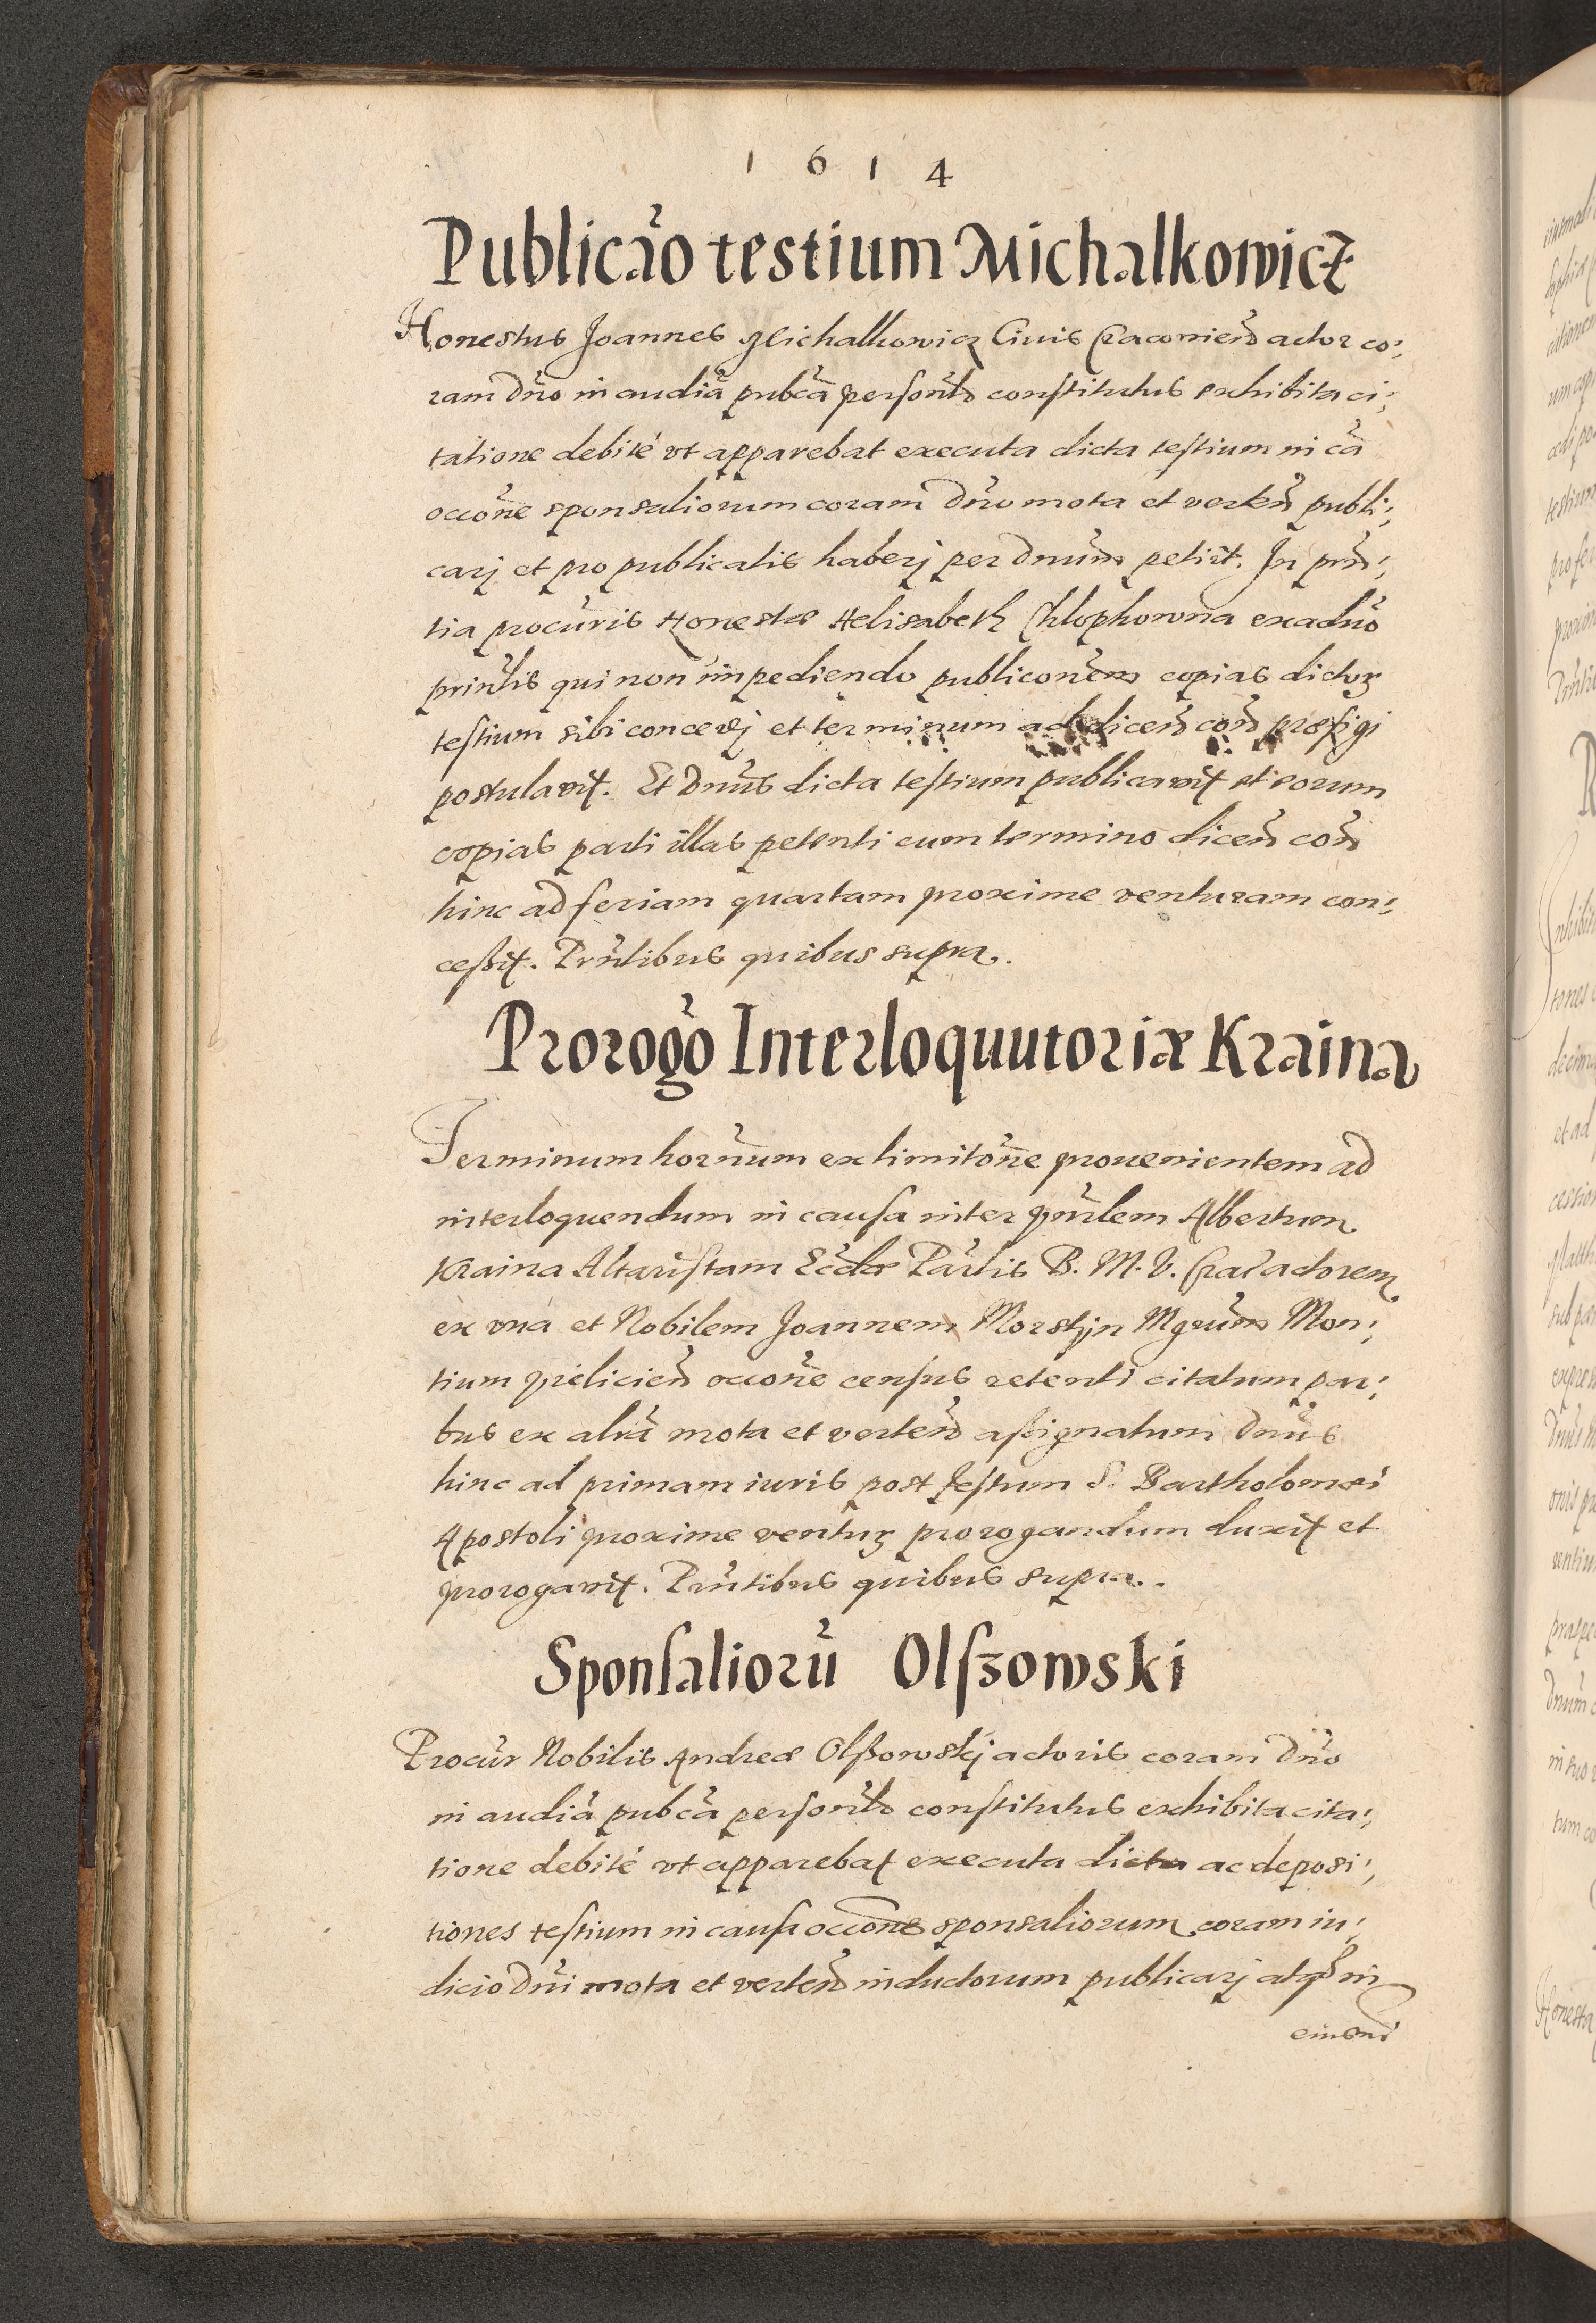 1614
Publicão testium Michalkowicz
Honestus Joannes Michalkowicz Ciuis Cracouien̄ actor co:,
ram Dño in audiã pubcã personlr̃ constitutus exhibita ci:,
tatione debitè vt apparebat executa dicta testium in cã
occoñe sponsaliorum coram Dño mota et verteñ publi:,
carj et pro publicatis haberj per Dnum̃ petijt. In prñ:,
tia procuris̃ Honestæ Helisabeth Chlophowna ex aduo
prinlis̃ qui non impediendo publiconem̃ copias dictoꝝ
testium sibi concedj et terminum ad diceñ coñ præfigi
postulavit. Et Dnus̃ dicta testium publicavit et eorum
copias parti illas petenti cum termino diceñ coñ
hinc ad feriam quartam proxime venturam con:,
cessit. Prñtibus quibus supra.
Prorogõ Interloquutoriæ Kraina
Terminum hornum̃ ex limitoñe prouenientem ad
interloquendum in causa inter Albertum
Kraina Altaristam Eccłæ B. M. V. Crac̃ actorem
ex vna et Nobilem Joannem Morstijn Mgrum̃ Mon:,
tium Vielicieñ occoñe census retenti citatum par:,
bus ex aliã mota et verteñ assignatum Dnus̃
hinc ad primam iuris post festum S. Bartholomæi
Apostoli proxime ventuꝝ prorogandum duxit et
prorogavit. Prñtibus quibus supra.
Sponsaliorũ Olszowski
Procũr Nobilis Andreæ Olssowskj actoris coram Dño
in audiã pubcã personlr̃ constitutus exhibita cita:,
tione debitè vt apparebat executa dicta ac deposi:,
tiones testium in causa occoñe sponsaliorum coram iu:,
dicio Dñi mota et verteñ inductorum publicarj atqꝫ in